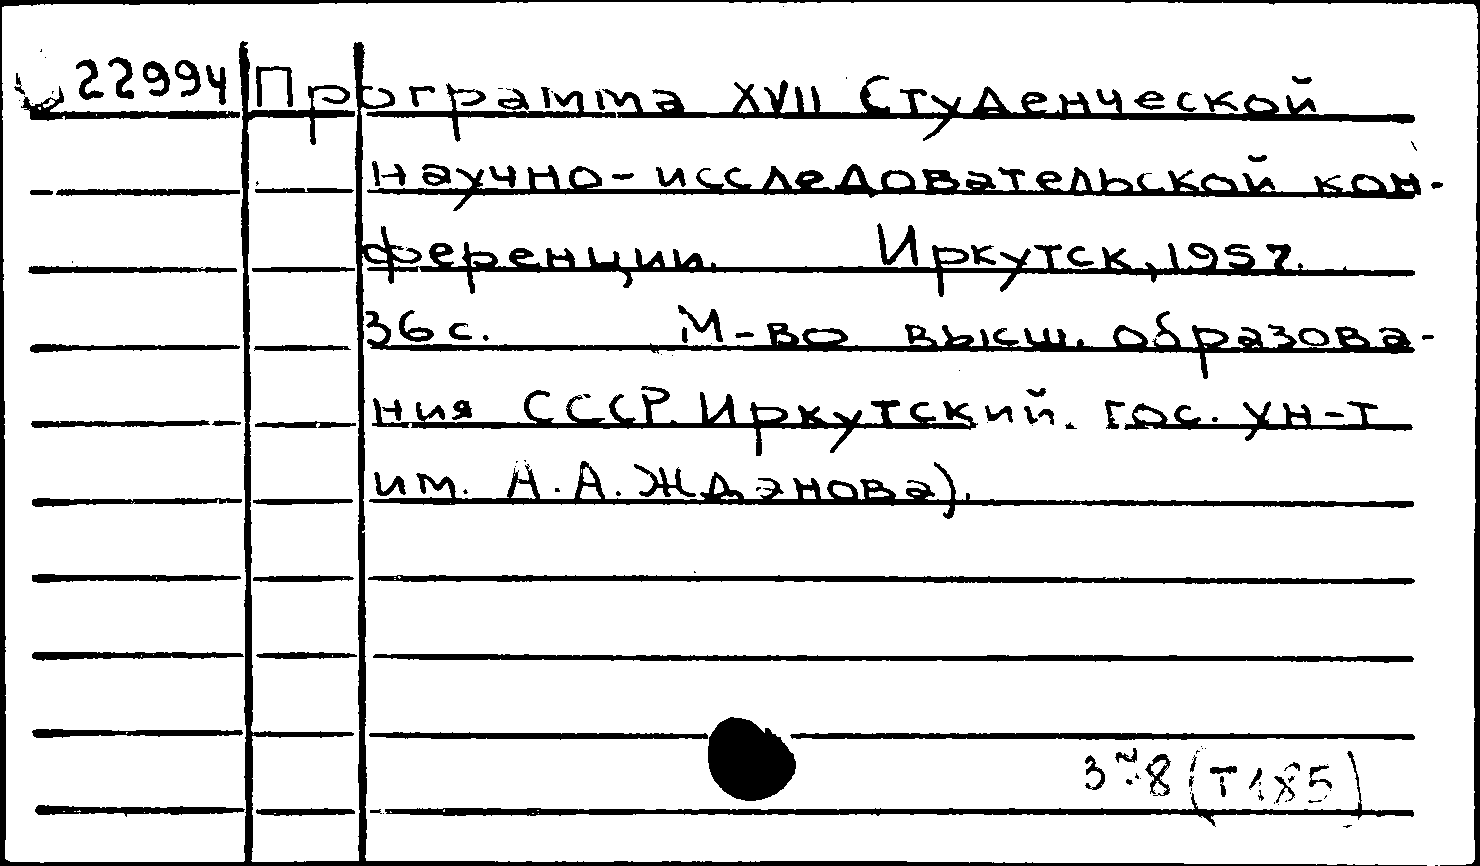 22994 Программа XVII Студенческой
научно-исследовательской кон-
ференции. Иркутск, 1957.
36 с. М-во высш. образова-
ния СССР. Иркутский. гос. ун-т
им. А.А. Жданова).
(Т185)